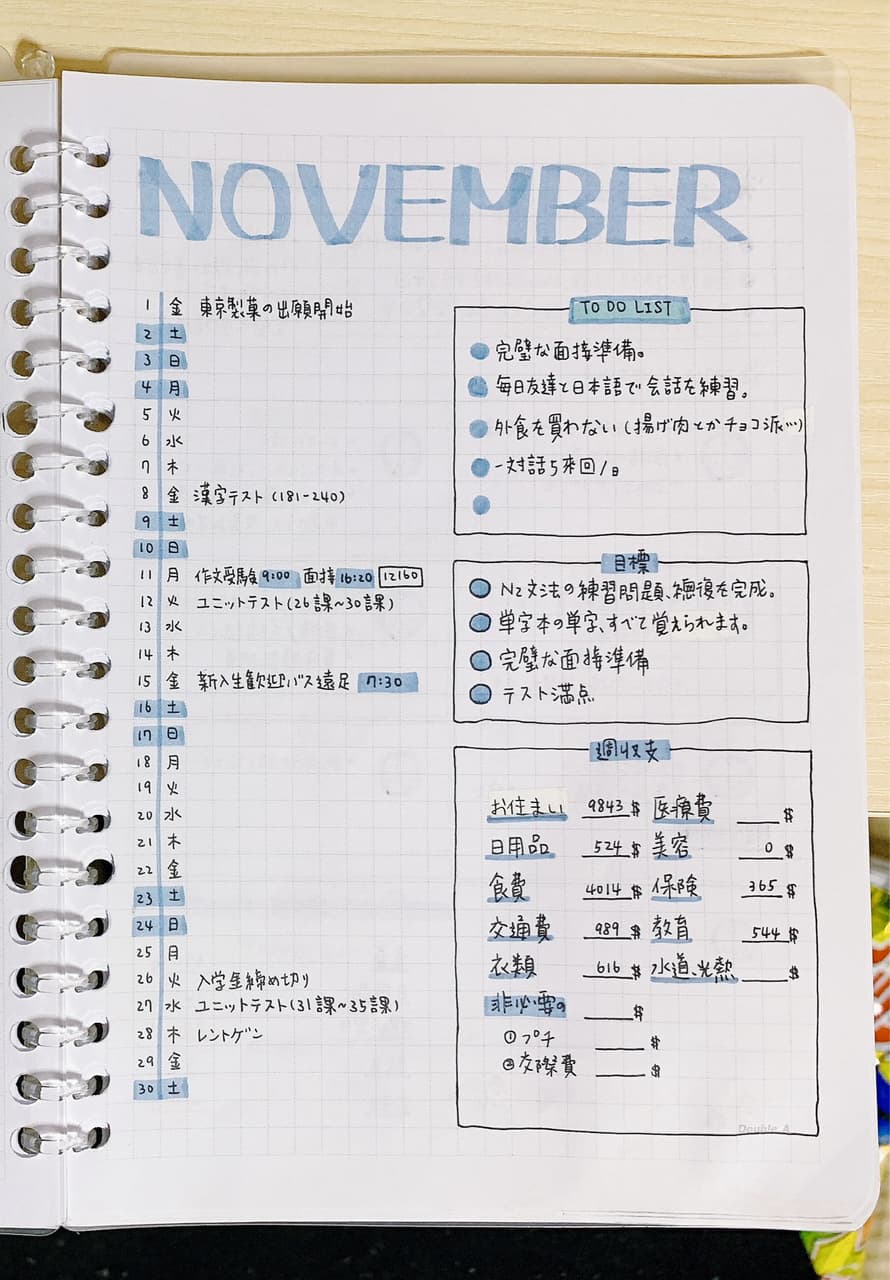 NOVEMBER
1 金 東京製菓の出願開始
2 土
3 日
4 月
5 火
6 水
7 木
8 金 漢字テスト (181-240)
9 土
10 日
11 月 作文受験 9:00 面接 16:20 12160
12 火 ユニットテスト(26課~30課)
13 水
14 木
15 金 新入生歓迎バス遠足 7:30
16 土
17 日
18 月
19 火
20 水
21 木
22 金
23 土
24 日
25 月
26 火 入学金締め切り
27 水 ユニットテスト(31課~35課)
28 木 レントゲン
29 金
30 土
TO DO LIST
完璧な面接準備。
毎日友達と日本語で会話を練習。
外食を買わない (揚げ肉とかチョコ派…)
一対話5來回/日
目標
N2文法の練習問題、総復を完成。
単字本の単字、すべて覚えられます。
完璧な面接準備
テスト満点
週収支
お住まい 9843 $ 医療費 $
日用品 524 $ 美容 0 $
食費 4014 $ 保険 365 $
交通費 989 $ 教育 544 $
衣類 616 $ 水道、光熱 $
非必要の $
① プチ $
② 交際費 $
Double A